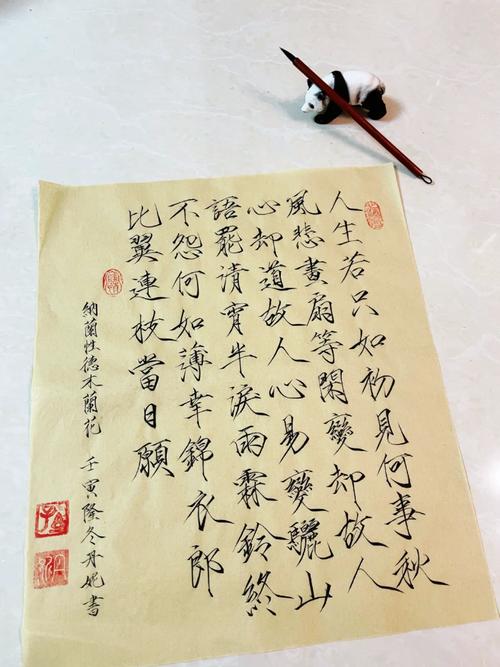 人生若只如初見何事秋
風悲畫扇等閑變却故人
心却道故人心易變驪山
語罷清宵半淚雨霖鈴終
不怨何如薄幸錦衣郎
比翼連枝當日願
納蘭性德木蘭花 壬寅隆冬丹妮書